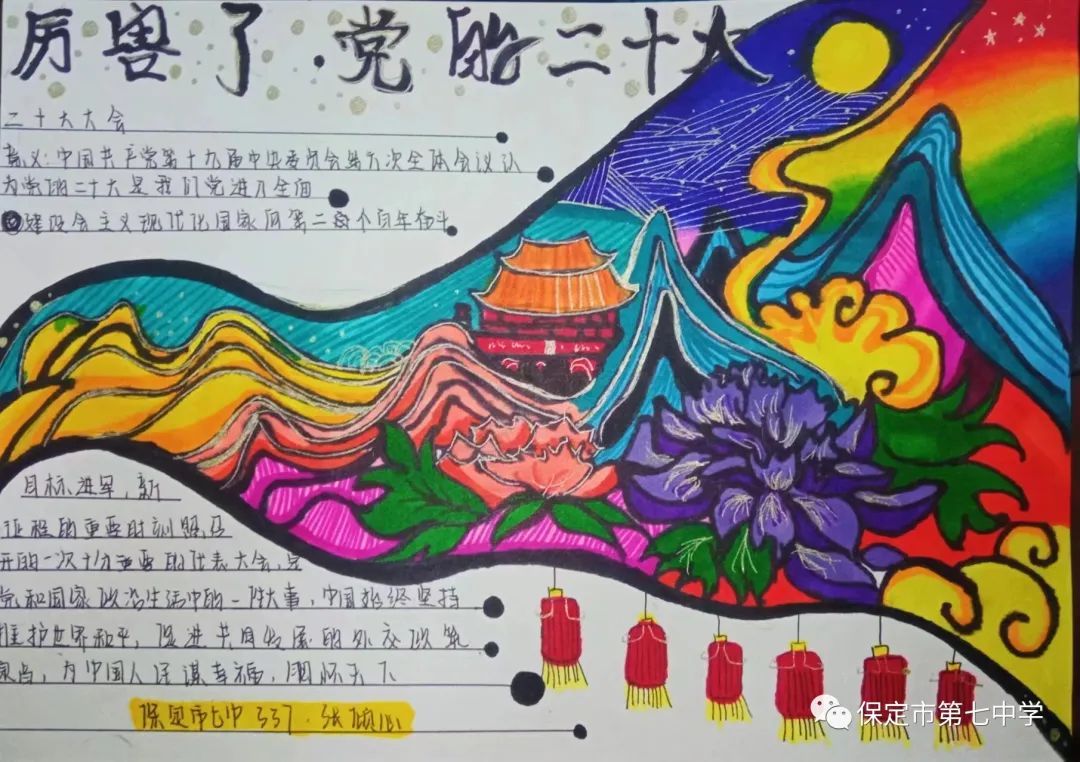 厉害了.党的二十大
二十大大会
意义:中国共产党第十九届中央委员会第六次全体会议认
为党的二十大是我们党进入全面
建设会主义现代化国家向第二个百年奋斗
目标进军,新
征程的重要时刻
开的一次十分重要的代表大会,是
党和国家政治生活中的一件大事,中国始终坚持
维护世界和平,促进共同发展的外交政策
家当,为中国人民谋幸福,胸怀天下
保定市七中337.张
保定市第七中学